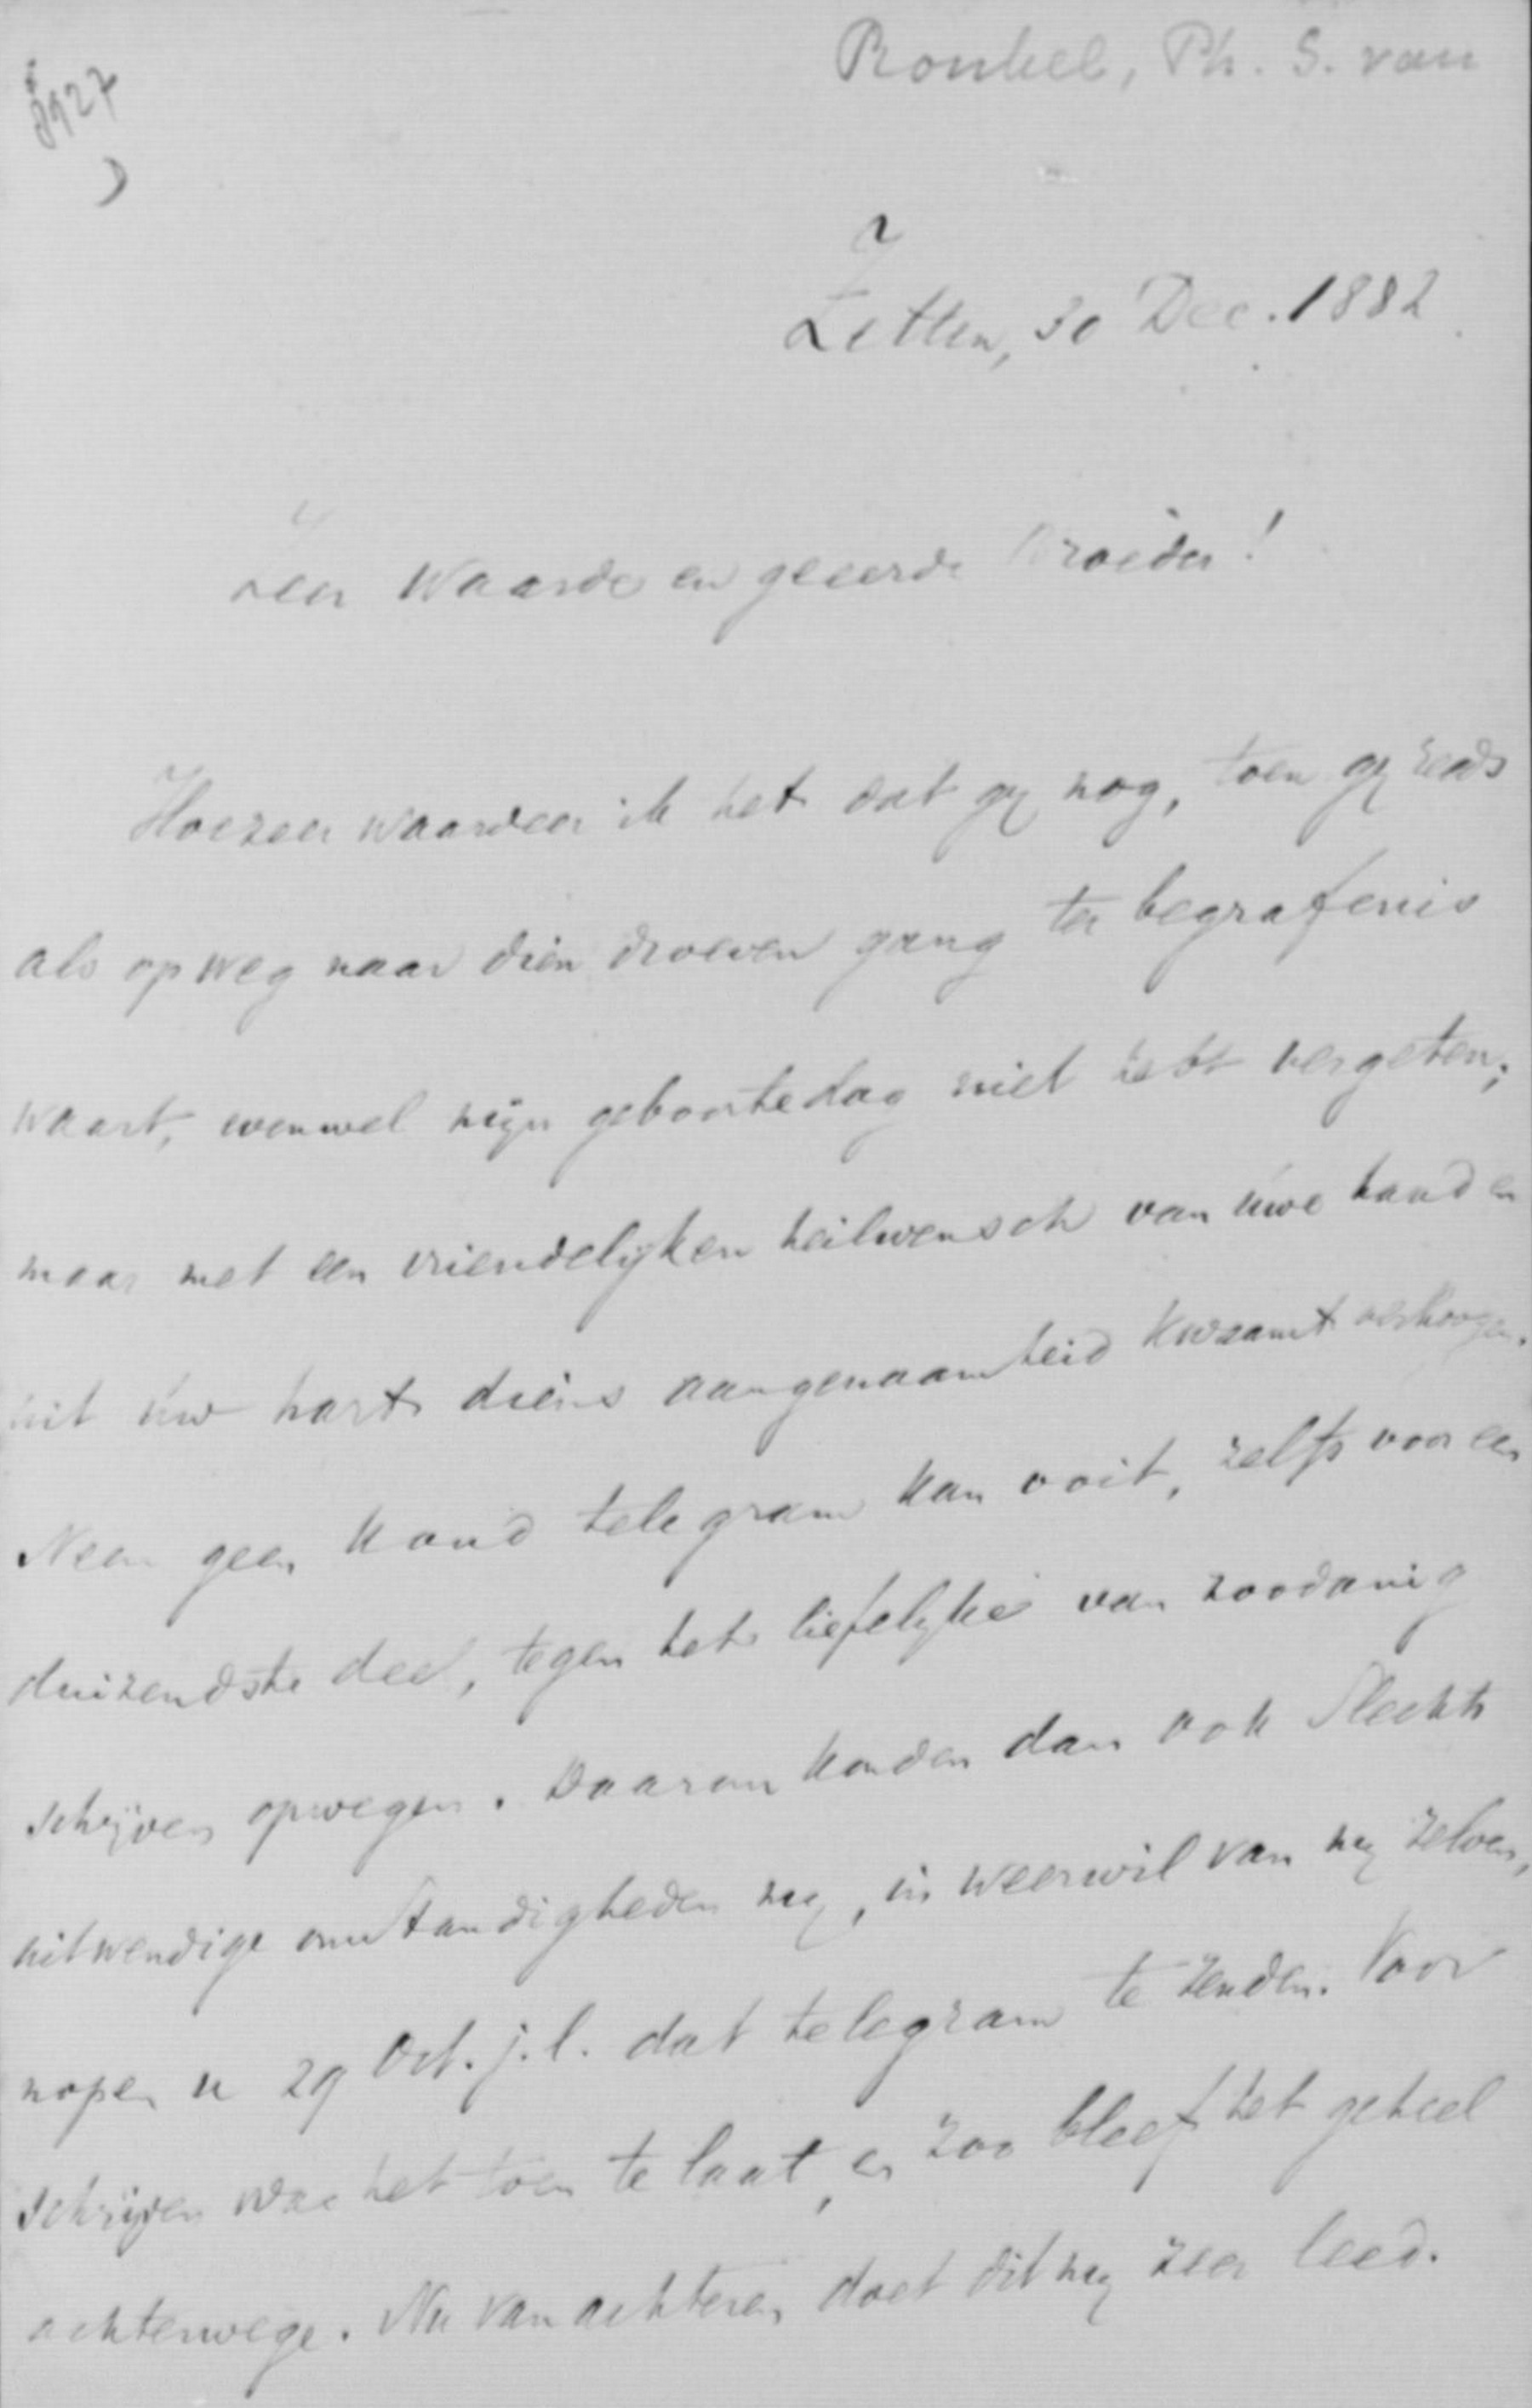 Ronkel, Ph. S. van
8927
Zetten, 30 Dec. 1882
Zeer Waarde en geeerde Broeder!
Hoezeer waardeer ik het dat gij nog, toen gij reeds
als op weg naar dien droeven gang ter begrafenis
waart, evenwel mijn geboortedag niet hebt vergeten;
maar met een vriendelijken heilwensch van úwe hand en
uit úw hart diens aangenaamheid kwaamt verhoogen.
Neen geen koud telegram kan ooit, zelfs voor een
duizendste deel, tegen het liefelijke van zoodanig
schrijven opwegen. Daarom konden dan ook slechts
uitwendige omstandigheden mij, in weerwil van mij zelven,
nopen u 29 Oct. j.l. dat telegram te zenden. Voor
schrijven was het toen te laat, en zoo bleef het geheel
achterwege. Nu van achteren doet dit mij zeer leed.